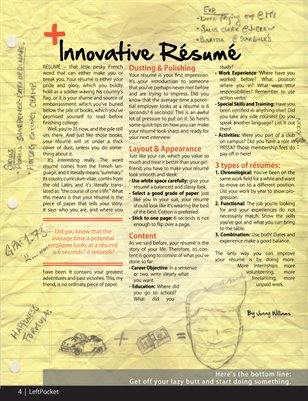 EXP
- SALES CLERK @ J.CREW
- BARISTA @ STARBUCKS
+
Innovative Résumé
RESUMÉ – that little pesky French
word that can either make you or
break you. Your resume is either your
pride and glory, which you boldly
hold as a soldier waving his country's
flag, or it is your shame and source of
embarrassment, which you've buried
beneath the pile of books, which you've
promised yourself to read before
finishing college.
Well, you're 25 now, and the pile still
is there. And just like those books,
your resume will sit under a thick
cover of dust, unless you do some-
thing about it.
It's interesting really. The word
résumé comes from the French lan-
guage, and it literally means "summary".
Its cousin, curriculum vitae, comes from
the old Latin, and it's literally trans-
lated as: "the course of one's life". What
this means is that your résumé is the
piece of paper that tells your story.
It says who you are, and where you
Did you know that the
average time a potential
employer looks at a résumé
is 6 seconds? 6 seconds!
have been. It contains your greatest
adventures and past victories. This, my
friend, is no ordinary piece of paper.
Dusting & Polishing
Your résumé is your first impression.
It's your introduction to someone
that you've perhaps never met before
and are trying to impress. Did you
know that the average time a poten-
tial employer looks at a résumé is 6
seconds? 6 seconds! This is an awful
lot of pressure to put on it. So here's
some sound tips on how you can make
your résumé look sharp and ready for
your next interview:
Layout & Appearance
Just like your car, which you value so
much and treat it better than your girl-
friend, you have to make your résumé
look smooth and sleek:
- Use white space carefully: give your
résumé a balanced and classy look.
- Select a good grade of paper: just
like you in your suit, your résumé
should look like it's wearing the best
of the best. Cotton is preferred.
- Stick to one page: 6 seconds is not
enough to flip over a page.
Content
As we said before, your résumé is the
story of your life. Therefore, its con-
tent is going to consist of what you've
done so far:
- Career Objective: in a sentence
or two, write clearly what
you want.
- Education: Where did
you go to school?
What did you
study?
- Work Experience: Where have you
worked before? What position
where you in? What were your
responsibilities? Remember to use
action verbs.
- Special Skills and Training: Have you
been certified in anything else? Did
you take any side courses? Do you
speak another language? List it out
then!
- Activities: Were you part of a club
on campus? Did you have a role in
PRSSA? Those membership fees do
pay off in here!
3 types of résumés:
1. Chronological: You've been on the
same work field for a while and want
to move on to a different position.
List your work by year to show pro-
gression.
2. Functional: The job you're looking
for and your experiences do not
necessarily match. Show the skills
you've got and what you can bring
to the table.
3. Combination: Use both! Dates and
experience make a good balance.
The only way you can improve
your résumé is by doing more.
More internships, more
volunteering, more
freelancing, more
unpaid work.
By: Jenny Williams
GPA: 1.75
A.....
HAPPINESS
FORMULA:
Here's the bottom line:
Get off your lazy butt and start doing something.
4 | LeftPocket